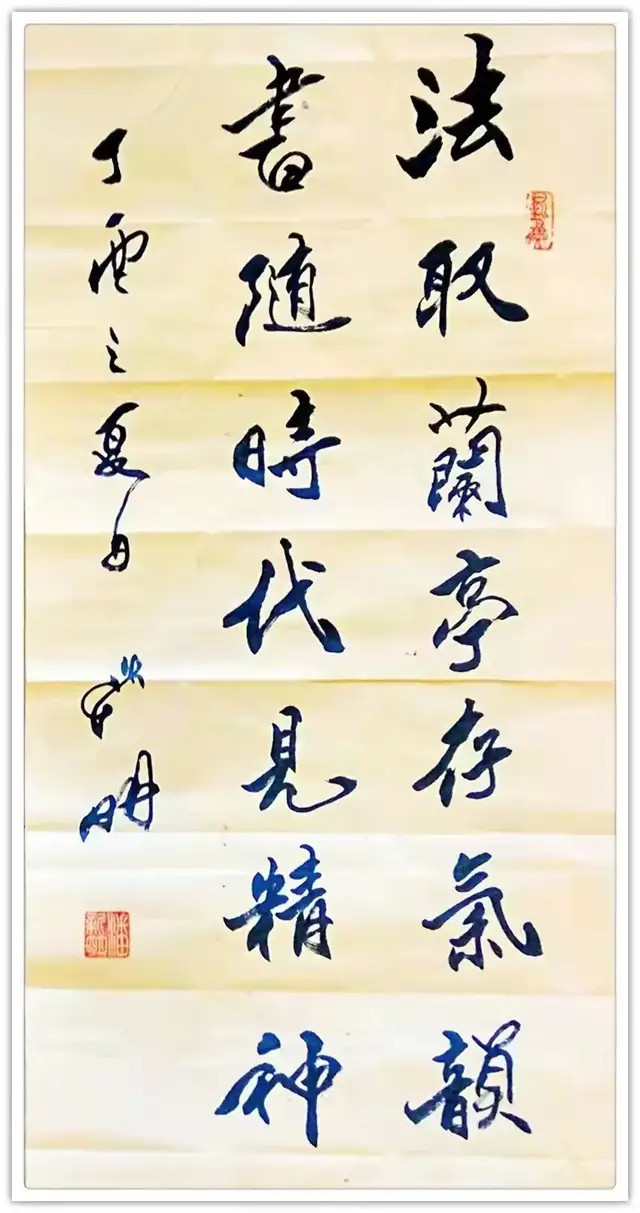 法取蘭亭存氣韻
書隨時代見精神
丁酉之夏月
明